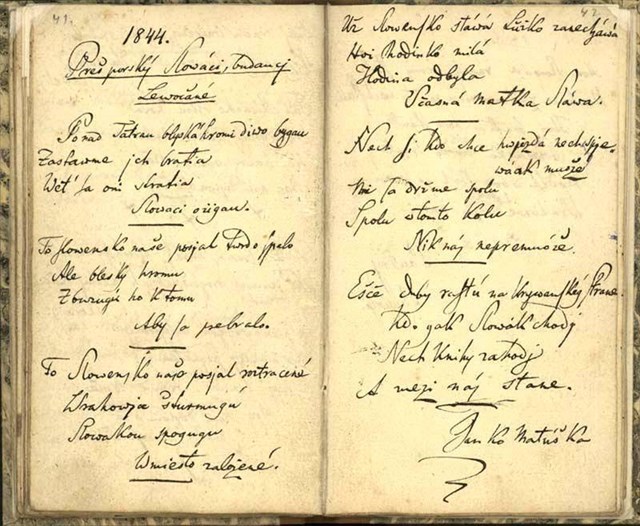 41.
1844.
Prešporský Slováci, budaucj
Lewočané
Ponad Tatrau blýská hromi diwo bygau
Zastawme jch bratia
Wět sa oni stratia
Slowaci ožigau.
To Slowensko naše posjal twrdo spalo
Ale blesky hromu
Zburcugú ho k tomu
Aby sa prebralo.
To Slowensko naše posjal roztracené
Slowakou spogugu
W miesto založené.
42.
Už Slowensko stáwá
Hoi Rodinko milá
Hodina odbyla
Včasná matka Sláwa.
Nech si kdo chce
Mi sa držme spolu
Spolu w tomto kolu
Nik náj nepremuože.
Ešče duby rastú na Krywanskég strane
Kdo gak Slowák chodj
Nech knihy zahodj
A mezi náj stane.
Janko Matúška